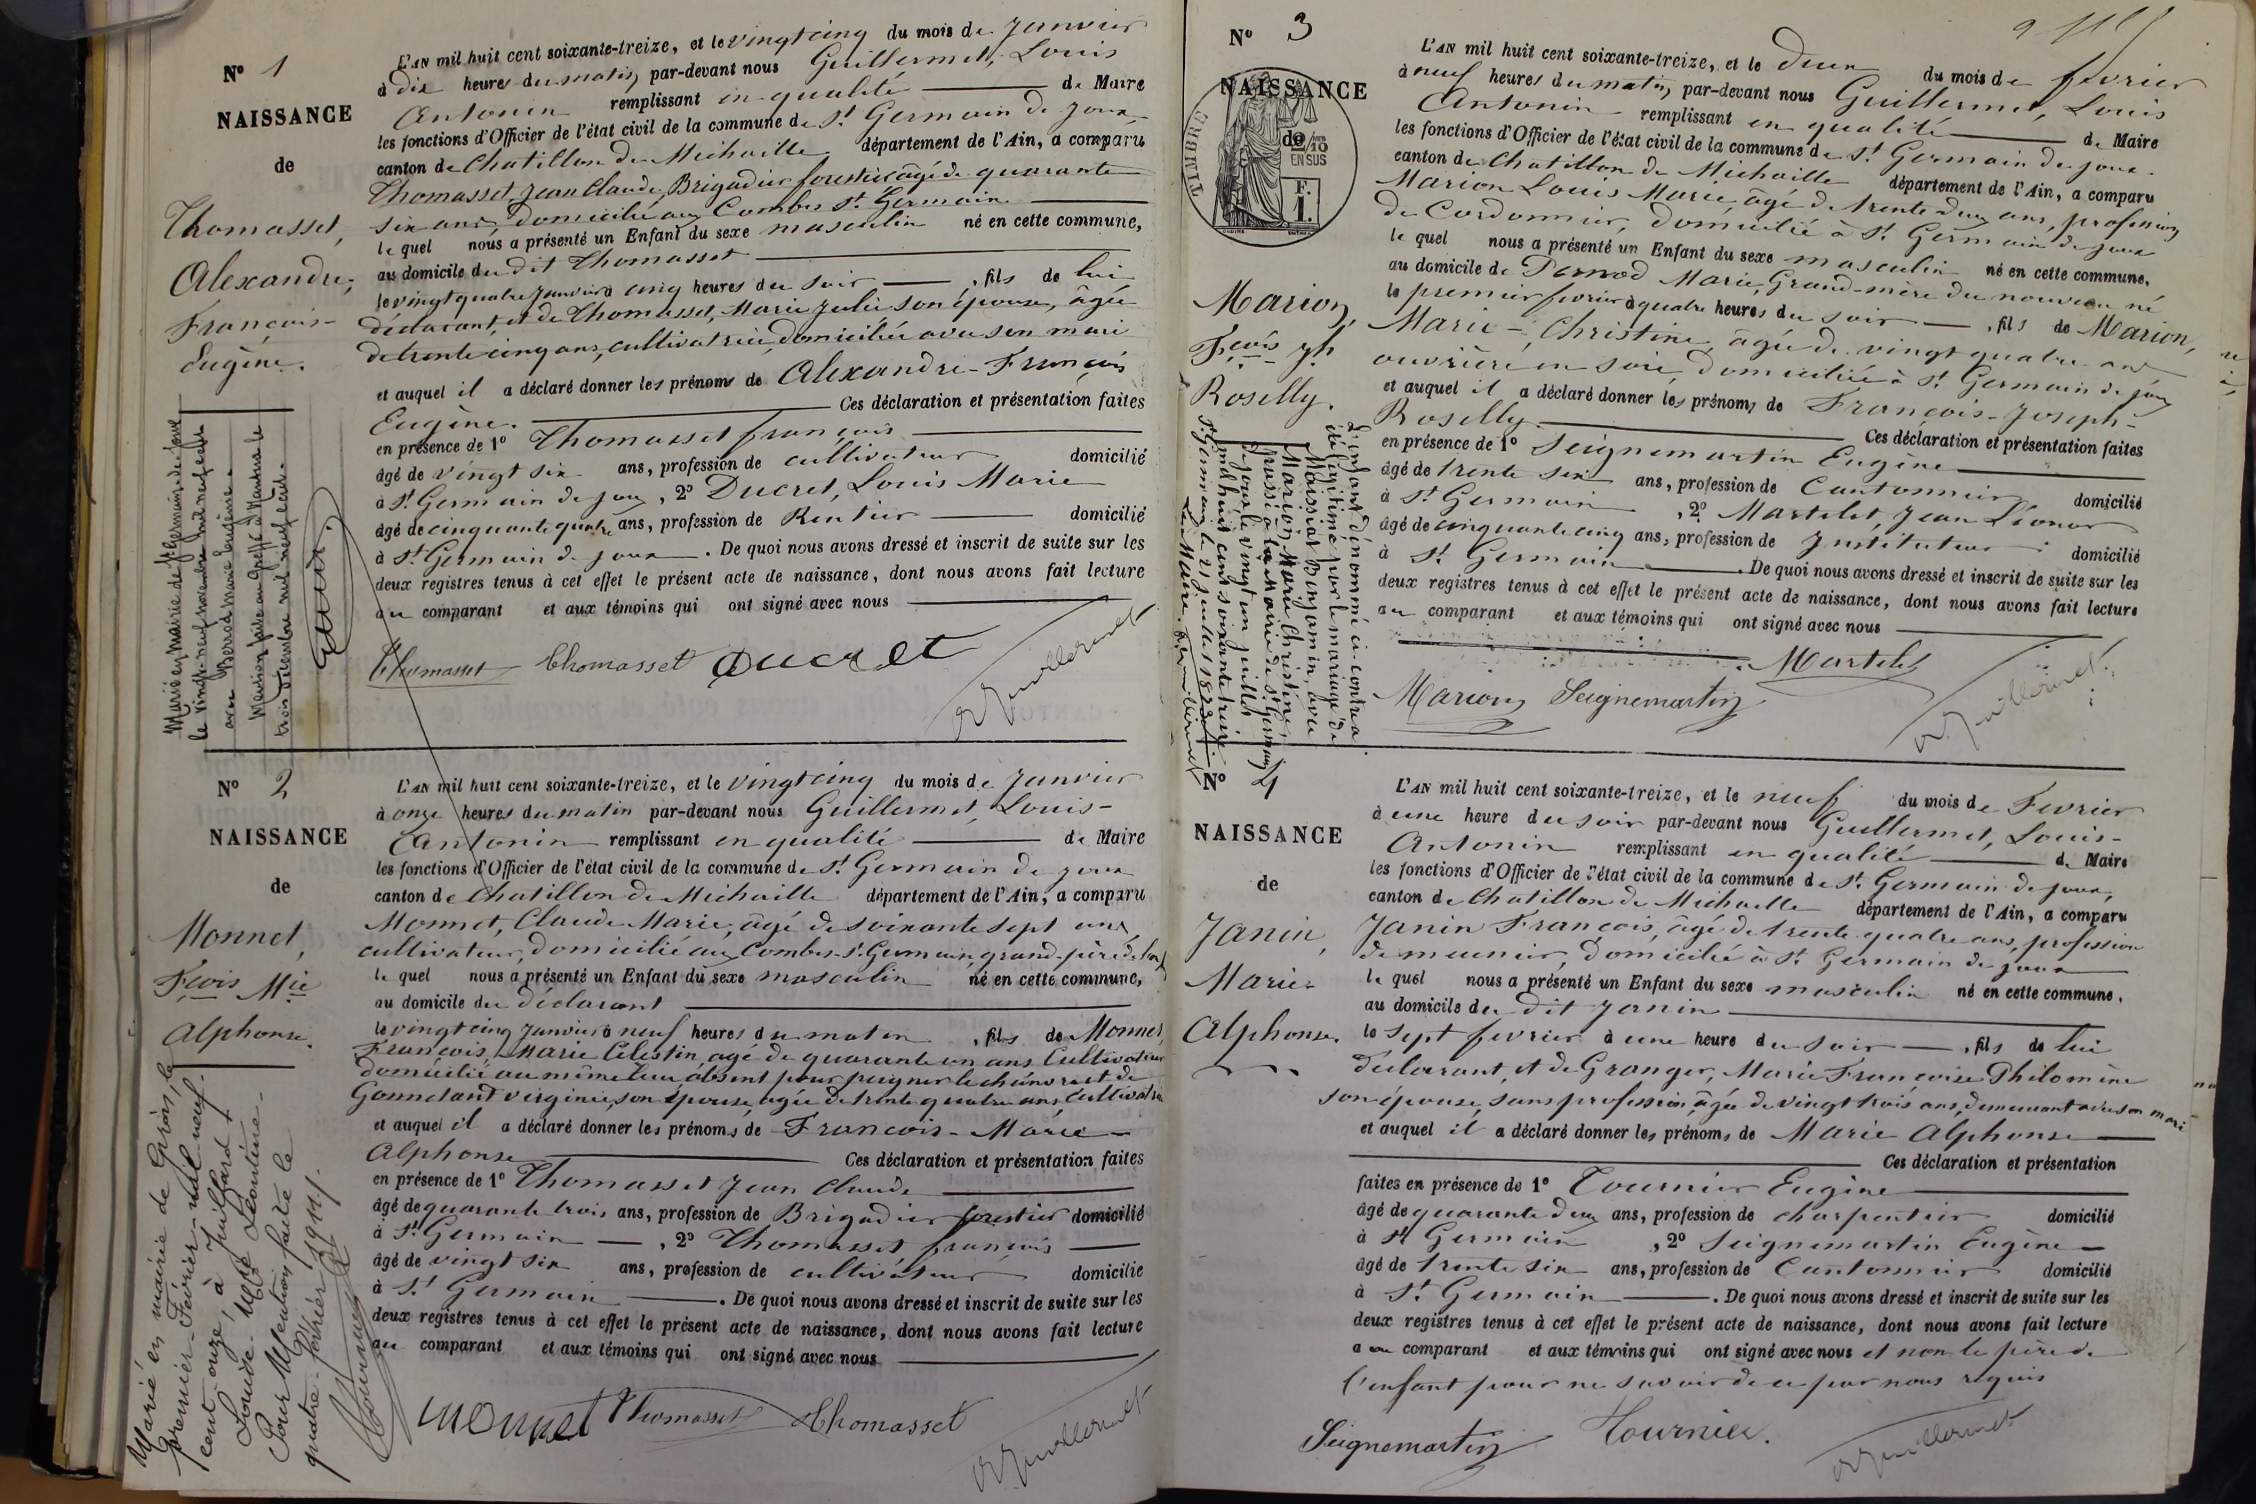 N° 1
NAISSANCE
de
Thomasset,
Alexandre,
François-
Eugène.
L'AN mil huit cent soixante-treize, et le vingt cinq du mois de Janvier
à dix heures du matin, par-devant nous Guillermet, Louis
Antonin remplissant en qualité de Maire
les fonctions d'Officier de l'état civil de la commune de St. Germain de Joux
canton de Chatillon de Michaille département de l'Ain, a comparu
Thomasset, Jean Claude, Brigadier forestier âgé de quarante
six ans, domicilié aux Combes St. Germain
le quel nous a présenté un Enfant du sexe masculin né en cette commune,
au domicile du dit Thomasset
le vingt quatre Janvier à cinq heures du soir, fils de lui
déclarant, et de Thomasset, Marie Julie son épouse, âgée
de trente cinq ans, cultivatrice, domiciliée avec son mari
et auquel il a déclaré donner les prénoms de Alexandre-François
Eugène. Ces déclaration et présentation faites
en présence de 1° Thomasset françois
âgé de vingt six ans, profession de cultivateur domicilié
à St Germain de Joux, 2° Ducret, Louis Marie
âgé de cinquante quatre ans, profession de Rentier domicilié
à St. Germain de Joux. De quoi nous avons dressé et inscrit de suite sur les
deux registres tenus à cet effet le présent acte de naissance, dont nous avons fait lecture
au comparant et aux témoins qui ont signé avec nous
Thomasset Thomasset Ducret
Guillermet
Marié en mairie de St Germain-de-Joux
le vingt-neuf novembre mil neuf cent
avec Berrod Marie Eugénie.
Mention faite au greffe d'Nantua le
trois décembre mil neuf cent.
N° 2
NAISSANCE
de
Monnet,
Fçois Mie
Alphonse.
L'AN mil huit cent soixante-treize, et le vingt cinq du mois de Janvier
à onze heures du matin par-devant nous Guillermet, Louis-
Antonin remplissant en qualité de Maire
les fonctions d'Officier de l'état civil de la commune de St. Germain de Joux
canton de Chatillon de Michaille département de l'Ain, a comparu
Monnet, Claude Marie, âgé de soixante sept ans,
cultivateur, domicilié aux Combes St. Germain, grand-père de l'enf
le quel nous a présenté un Enfant du sexe masculin né en cette commune,
au domicile du déclarant
le vingt cinq Janvier à neuf heures du matin, fils de Monnet,
François, Marie Célestin, agé de quarante un ans, Cultivateur
domicilié au même lieu, absent pour peigner le chanvre et de
Gonnetant Virginie, son épouse, agée de trente quatre ans, Cultivatrice
et auquel il a déclaré donner les prénoms de François-Marie-
Alphonse Ces déclaration et présentation faites
en présence de 1° Thomasset Jean Claude
âgé de quarante trois ans, profession de Brigadier forestier domicilié
à St. Germain, 2° Thomasset françois
âgé de vingt six ans, profession de cultivateur domicilié
à St. Germain. De quoi nous avons dressé et inscrit de suite sur les
deux registres tenus à cet effet le présent acte de naissance, dont nous avons fait lecture
au comparant et aux témoins qui ont signé avec nous
Monnet Thomasset Thomasset
Guillermet
Marié en mairie de Giron, le
premier-Février-mil-neuf-
cent-onze, à Juillard
Louise Léontine-
Pour Mention faite le
quatre-février 1911.
N° 3
NAISSANCE
de
TIMBRE
2/10
EN SUS
F.
1.
Marion,
Fçois Jh
Roselly.
L'AN mil huit cent soixante-treize, et le deux du mois de février
à neuf heures du matin, par-devant nous Guillermet, Louis
Antonin remplissant en qualité de Maire
les fonctions d'Officier de l'état civil de la commune de St. Germain de Joux.
canton de Chatillon de Michaille département de l'Ain, a comparu
Marion Louis Marie, âgé de trente deux ans, profession
de Cordonnier, domicilié à St. Germain de Joux
le quel nous a présenté un Enfant du sexe masculin né en cette commune,
au domicile de Pernod Marie, Grand-mère du nouveau né
le premier février à quatre heures du soir, fils de Marion,
Marie-Christine, âgée de vingt quatre ans
ouvrière en soie, domiciliée à St. Germain de Joux
et auquel il a déclaré donner les prénoms de François-Joseph-
Roselly. Ces déclaration et présentation faites
en présence de 1° Seignemartin Eugène
âgé de trente six ans, profession de Cantonnier domicilié
à St Germain, 2° Martelet, Jean Léonor
âgé de cinquante cinq ans, profession de Instituteur domicilié
à St. Germain. De quoi nous avons dressé et inscrit de suite sur les
deux registres tenus à cet effet le présent acte de naissance, dont nous avons fait lecture
au comparant et aux témoins qui ont signé avec nous
Martelet
Marion Seignemartin
Guillermet
L'enfant dénommé ci-contre a
été légitimé par le mariage de
Maissiat Benjamin, avec
Marion, Marie Christine,
passé à la Mairie de St. Germain
de Joux, le vingt un juillet
mil huit cent soixante treize
St. Germain le 21 Juillet 1873
Le Maire. Guillermet
N° 4
NAISSANCE
de
Janin,
Marie-
Alphonse.
L'AN mil huit cent soixante-treize, et le neuf du mois de Fevrier
à une heure du soir par-devant nous Guillermet, Louis-
Antonin remplissant en qualité de Maire
les fonctions d'Officier de l'état civil de la commune de St. Germain de Joux,
canton de Chatillon de Michaille département de l'Ain, a comparu
Janin François, âgé de trente quatre ans, profession
de meunier, domicilié à St. Germain de Joux
le quel nous a présenté un Enfant du sexe masculin né en cette commune.
au domicile du dit Janin
le sept février à une heure du soir, fils de lui
déclarant, et de Granger, Marie Françoise Philomène
son épouse, sans profession, âgée de vingt trois ans, demeurant avec son mari
et auquel il a déclaré donner les prénoms de Marie Alphonse
Ces déclaration et présentation
faites en présence de 1° Tournier Eugène
âgé de quarante deux ans, profession de charpentier domicilié
à St Germain, 2° Seignemartin Eugène
âgé de trente six ans, profession de Cantonnier domicilié
à St. Germain. De quoi nous avons dressé et inscrit de suite sur les
deux registres tenus à cet effet le présent acte de naissance, dont nous avons fait lecture
au comparant et aux témoins qui ont signé avec nous et non le père de
l'enfant pour ne savoir de ce par nous requis
Seignemartin Tournier.
Guillermet